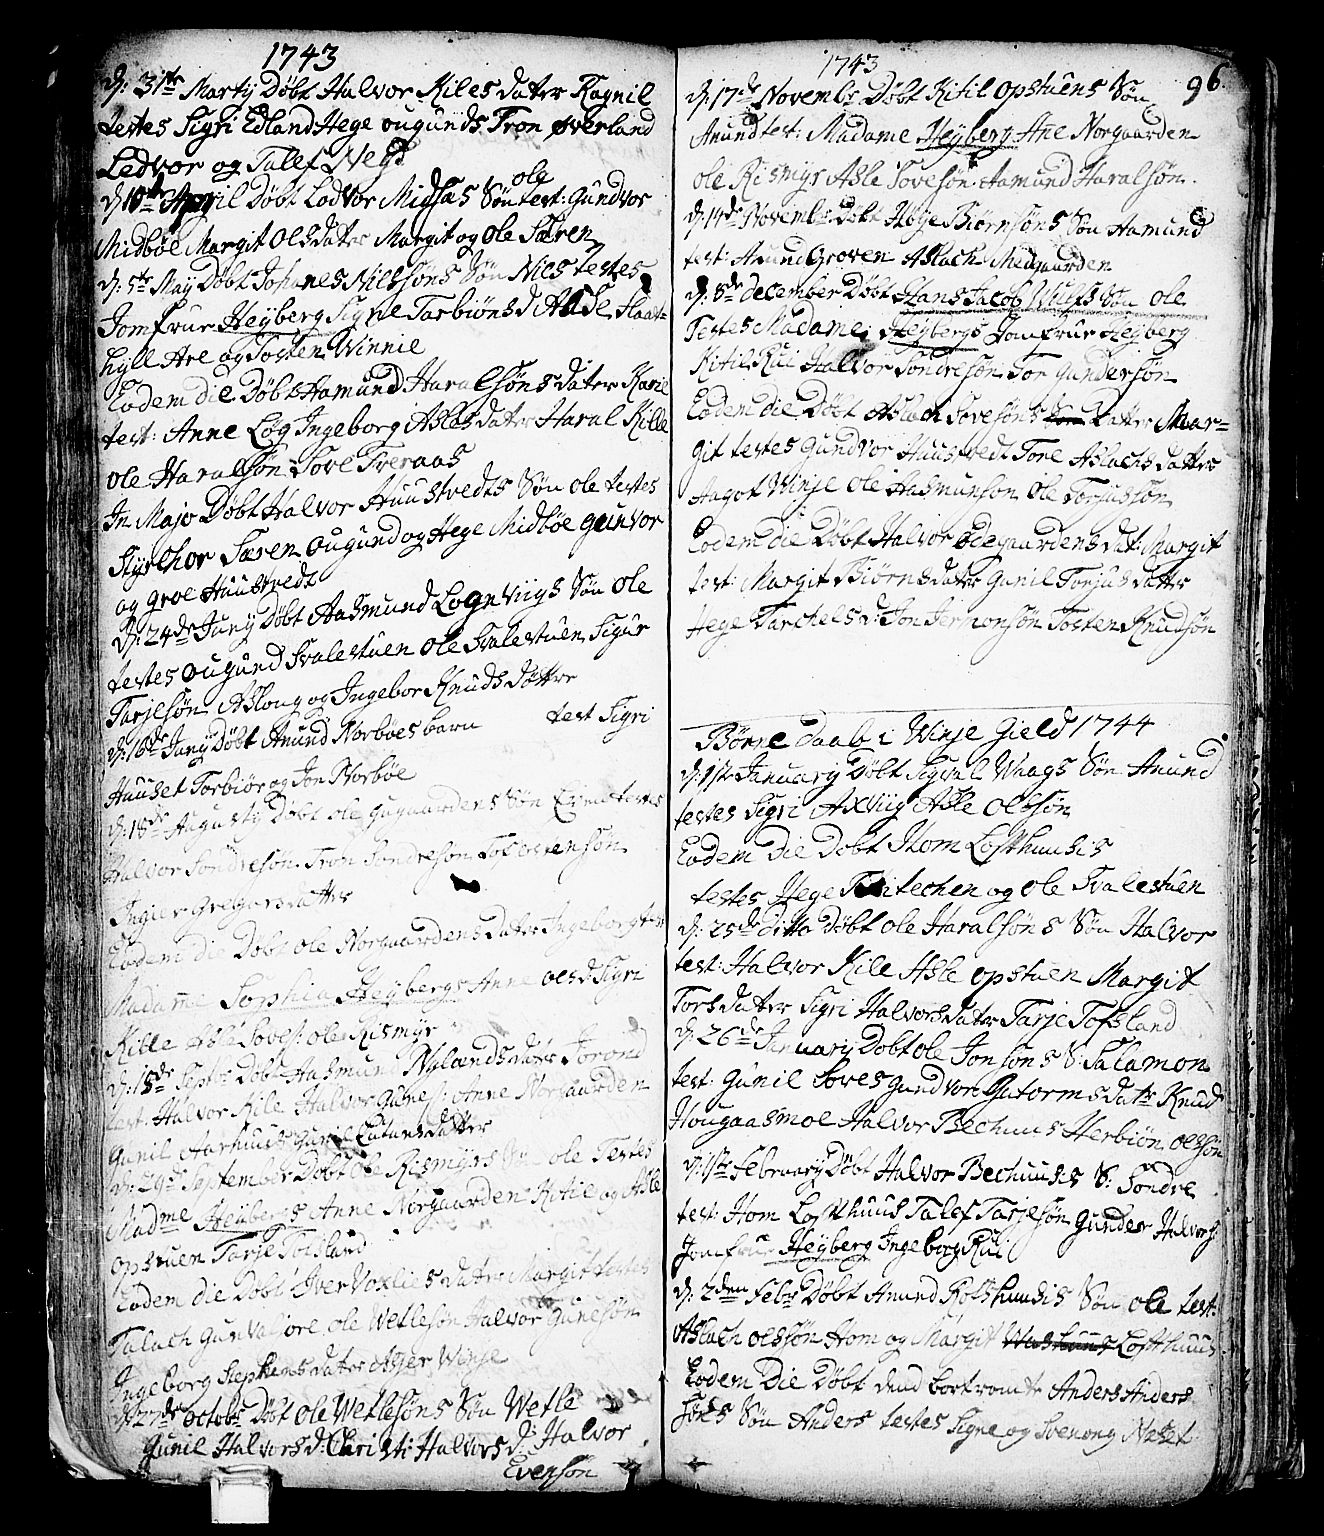 1743
d: 31te Martij Døbt Halvor Kiles dater Ragnil
testes Sigri Edland Hege ougunds Tron øverland
Ledvor og Talef Nests
ole
d: 10de April Døbt Lodvor Midsæs Søn test: Gundvor
Midbøe Margit Olsdater Margit og Ole Særen
d: 5te May Døbt Johanes Nilssøns Søn Nils testes
Jomfrue Heyberg Signe Tarbiønsd: Aase Haat-
hyll Are og Tosten Winnie
Eodem die Døbt Hamund Haralsøns dater Karie
test: Anne Løg Ingeborg Aslesdater Haral Kille
ole Haralsøn Sove Treraas
In Majo Døbt Halvor Huustvedts Søn ole testes
Styrchor Særen ougund og Hege Midbøe gunvor
og groe Huustvedt
d: 24de Juny Døbt Aasmund Lognviigs Søn Ole
testes ougund Svalestuen ole Svalestuen Sigur
Tarjesøn Asloug og Ingebor Knudsdøttre
d: 16de Juny Døbt Anund Norbøes barn test Sigri
Huuset Torbiør og Jon Norbøe
d: 18de Augusty Døbt ole Gugaardens Søn Even testes
Halvor Sondresøn Tron Sondresøn Tov evensøn
Ingier Gregorsdatter
Eodem die Døbt ole Norgaardens dater Ingeborg test
Madame Sophia Heybergs Anne olsd: Sigri
Kille Asle Soves: ole Rismyr
d: 15de Septbr Døbt Aasmund Nylands dater Jorond
test: Halvor Kile Halvor Gunes: Anne Norgaarden
Gunil Aarhuus Guril Eutunsdatter
d: 29de September Døbt Ole Rismyrs Søn ole Testes
Madme Heybergs Anne Norgaarden Kitil og Asle
opstuen Tarje Toisland
Eodem die Døbt Iver Voxlies dater Margit testes
Talach Gunvaljore ole Wetlesøn Halvor Gunesøn
Ingeborg Stephensdater Asjer Winje
d: 27de octobr Døbt ole Wetlesøns Søn Wetle
Gunil Halvorsd: Christi Halvorsd: Halvor
Evensøn
1743
96.
d: 17de Novembr Døbt Kitil Opstuens Søn
Anund test: Madame Heyberg Ane Norgaarden
ole Rismyr Asle Sovesøn Aamund Haralsøn.
d: 14de Novembr Døbt Høye Biørnsøns Søn Hamund
test: Anund Groven Aslach Midgaarden
d: 8de december Døbt Hans Jacob Wulfs Søn ole
Testes Madame Heybergs Jomfrue Heyberg
Kitil Rui Halvor Sondresøn Tor Gundersøn
Eodem die Døbt Aslach Sovesøns Søn Datter Mar-
git testes Gundvor Huustvedt Tore Aslachs datter
Aagot Winje Ole Aasmunson Ole Torjussøn
Eodem die Døbt Halvor ødegaardens dat: Margit
test: Margit Biørnsdater Gunil Torjusdatter
Hege Tarchelsd: Jon Jermonsøn Tosten Knudsøn
Børne daab i Winje Gield 1744
d: 1ste January Døbt Sigvul Waags Søn Anund
testes Sigri Axviig Asle Olsøn
Eodem Die Døbt Hom Lofthuusis
testes Hege Kitechen og ole Svalestuen
d: 25de ditto Døbt ole Haralsøns Søn Halvor
test: Halvor Kile Asle opstuen Margit
Torsdater Sigri Halvorsdater Tarje Tofsland
d: 26de January Døbt ole Jonsøns S: Salamon
test: Gunil Soves gundvor Gutormsdatr Knud
Hougaasmoe Halvor Bechuus Herbiøn olssøn
d: 1ste February Døbt Halvor Bechuusis S: Søndre
test: Hom Lofthuus Talef Tarjesøn Gunder Halvors:
Jomfrue Heyberg Ingeborg Rui
d: 2den Febr Døbt Anund Rolshuusis Søn ole test:
Aslach olssøn Hom og Margit Lofthuus
Eodem Die Døbt dend bortromte Anders Anders
søns Søn Anders testes Signe og Svenong